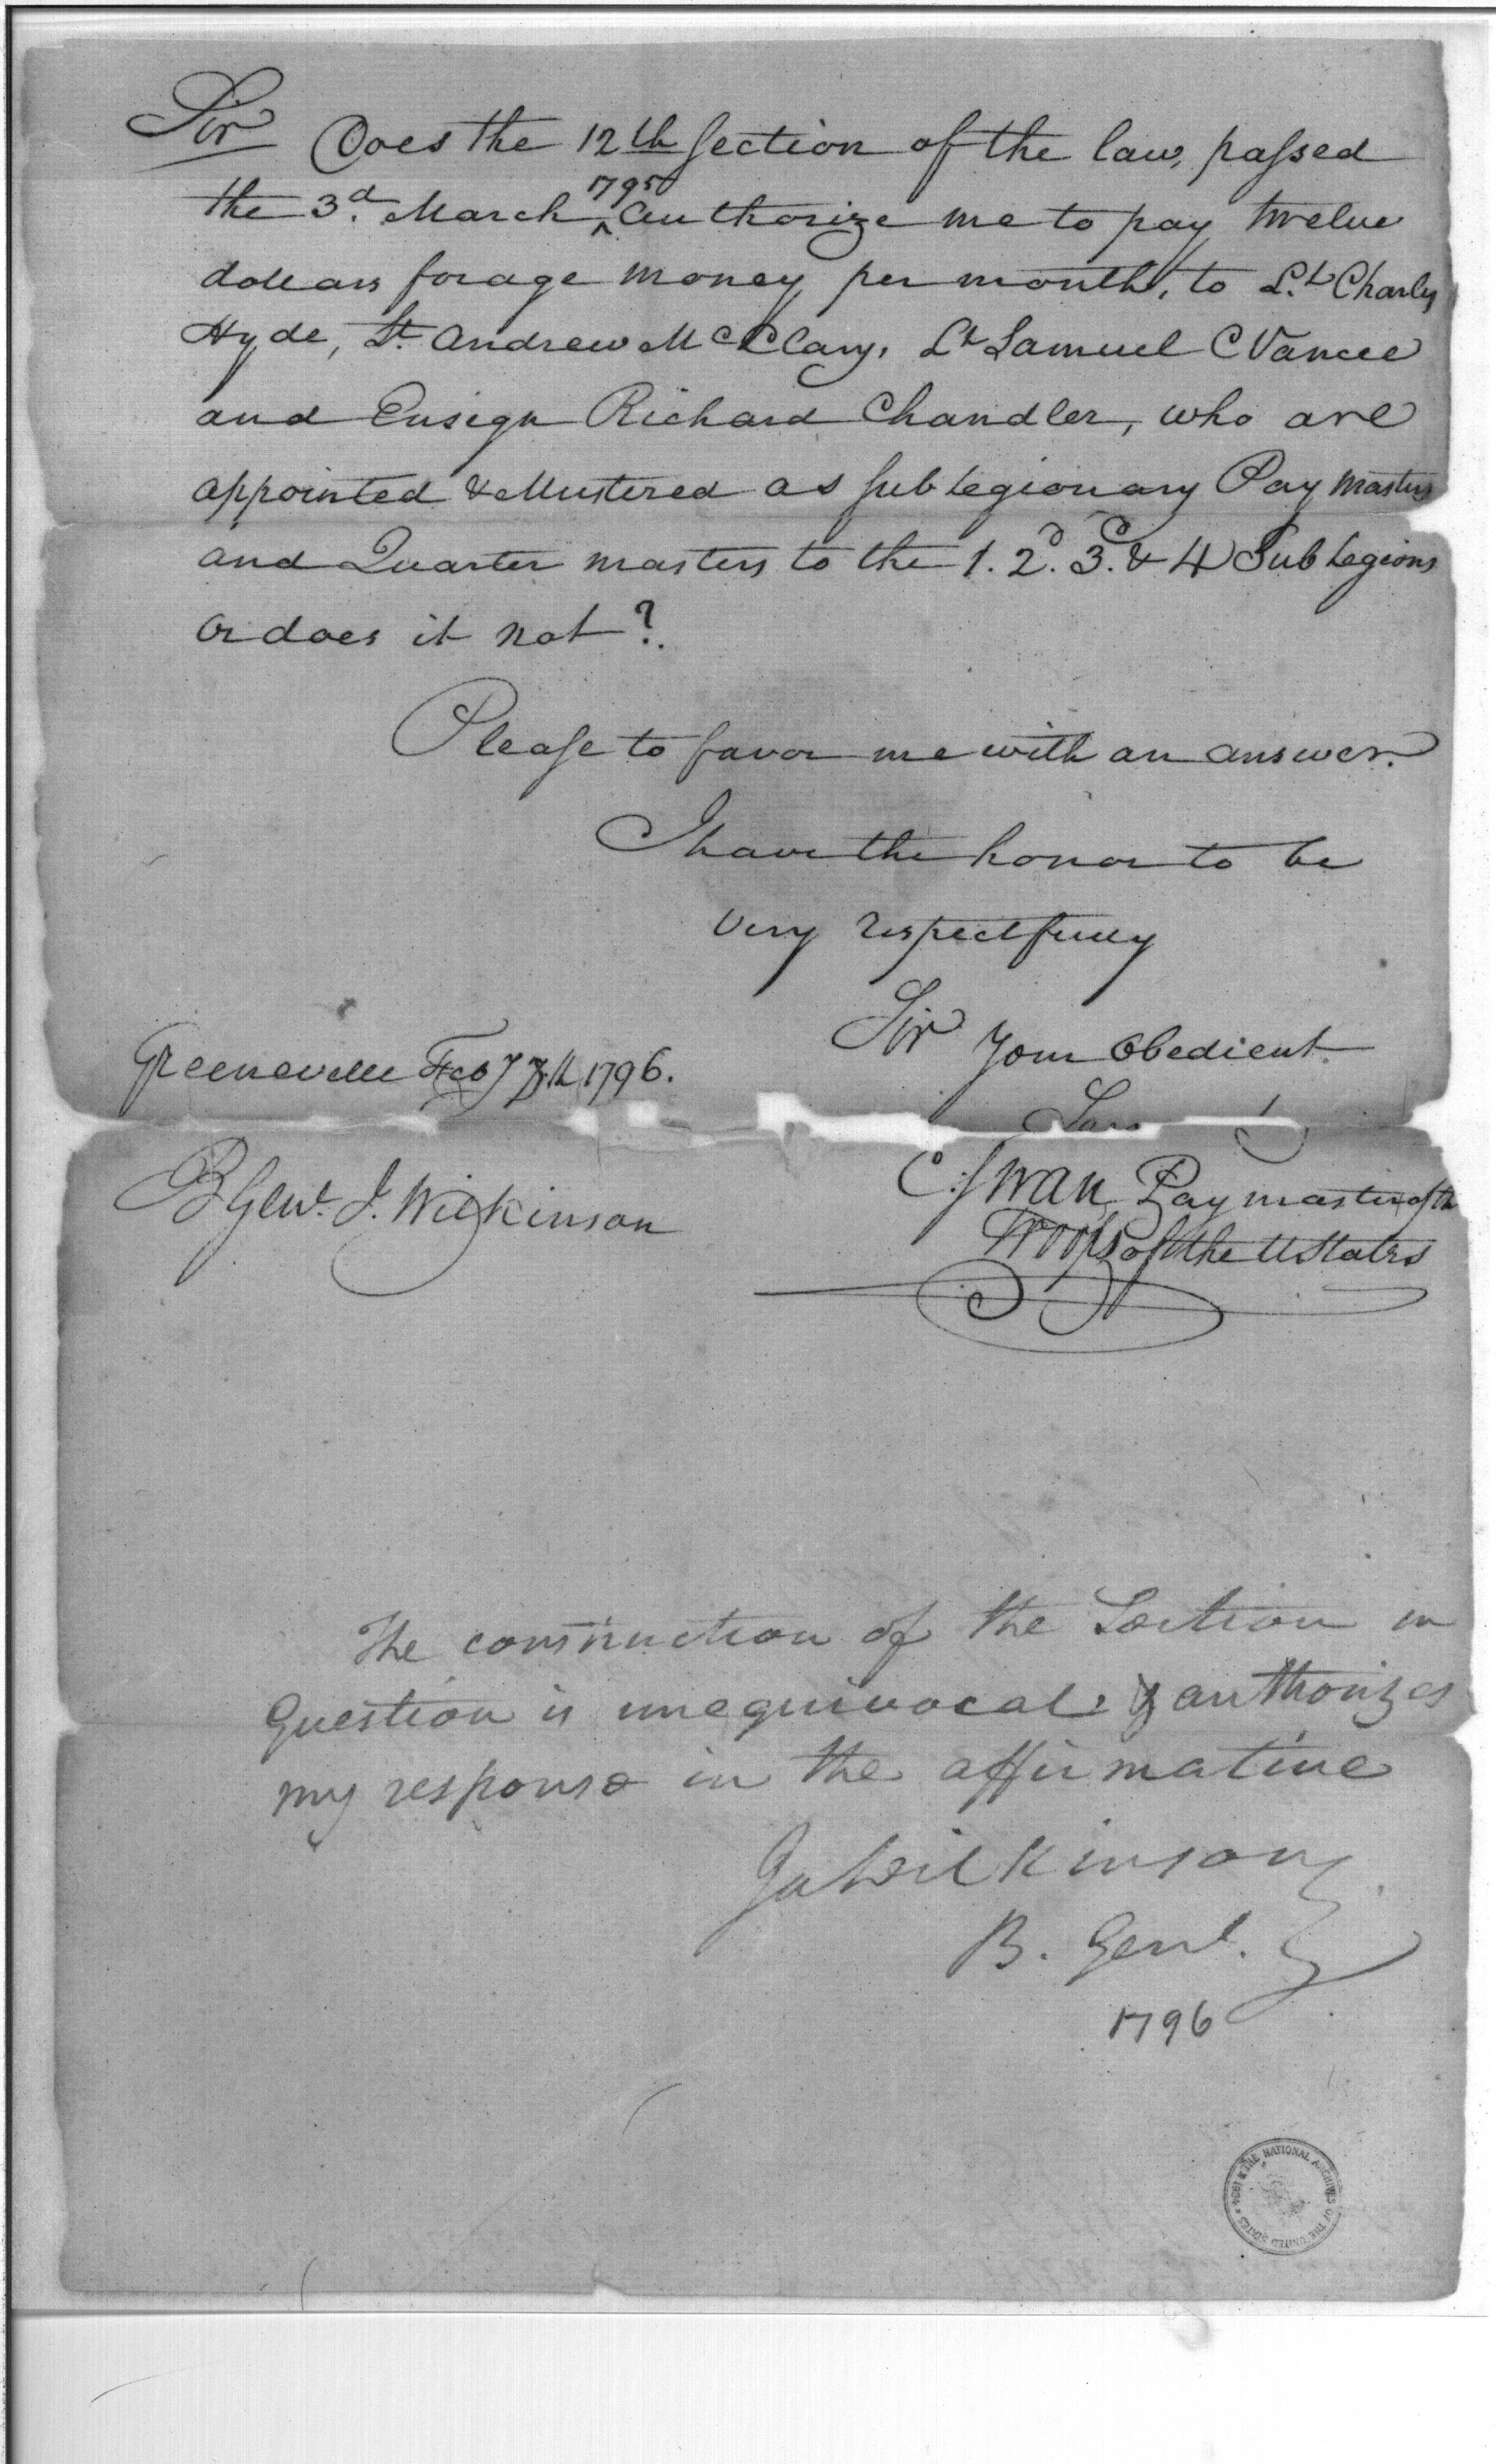 Sir Does the 12th Section of the law, passed
the 3d. March 1795 Authorize me to pay twelve
dollars forage money per month, to Lt. Charles
Hyde, Lt. Andrew McClary, Lt Samuel C Vance
and Ensign Richard Chandler, who are
appointed & Mustered as Sub Legionary Pay Masters
and Quarter masters to the 1. 2d. 3d. & 4 Sub Legions
or does it not?
Please to favor me with an answer.
I have the honor to be
Very respectfully
Sir Your Obedient
Greeneville Feby 7th 1796.
C: Swan Paymaster of the
Troops of the UStates
B Genl. J. Wilkinson
The construction of the Section in
Question is unequivocal, & authorizes
my response in the affirmative
Ja Wilkinson
B. Genl.
1796
THE NATIONAL ARCHIVES OF THE UNITED STATES 1934